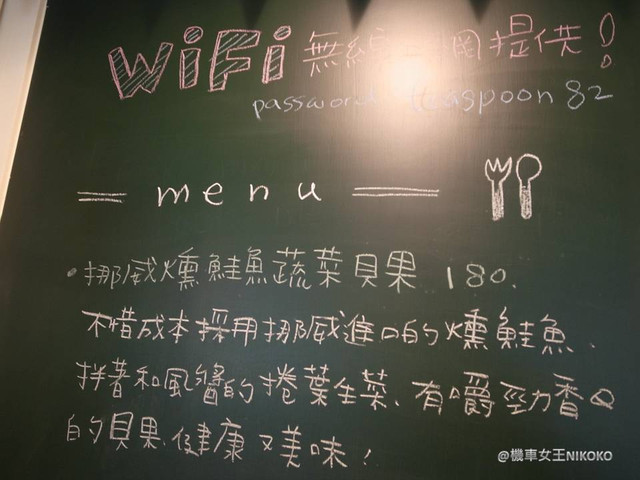 WiFi 無線上網提供!
password teaspoon 82
= menu =
•挪威燻鮭魚蔬菜貝果 180.
不惜成本採用挪威進口的燻鮭魚、
拌著和風醬的捲葉生菜、有嚼勁香Q
的貝果,健康又美味!
@機車女王NIKOKO